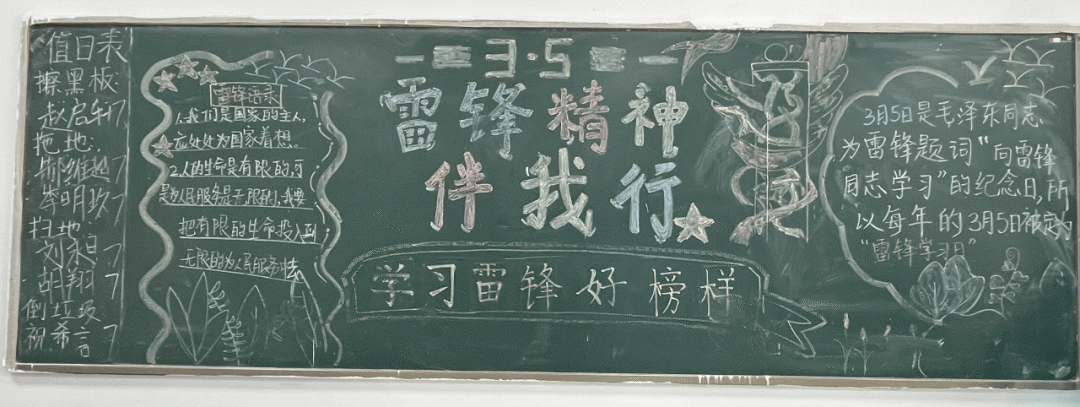 值日表
擦黑板:
赵启轩7
拖地:
7
岑明玖7
扫地
刘泉7
胡翔7
倒垃圾
祝希言7
雷锋语录
1.我们是国家的主人,
应处处为国家着想。
2.人的生命是有限的,可
是为人民服务是无限的,我要
把有限的生命投入到
无限的为人民服务中去
3·5
雷锋精神
伴我行
学习雷锋好榜样
3月5日是毛泽东同志
为雷锋题词“向雷锋
同志学习”的纪念日,所
以每年的3月5日被定为
“雷锋学习日”